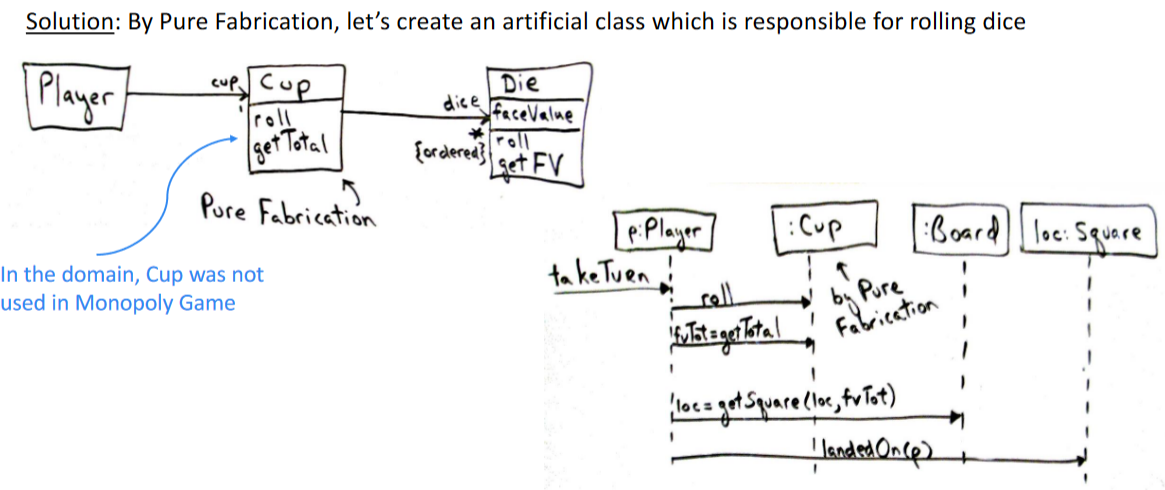 Solution: By Pure Fabrication, let's create an artificial class which is responsible for rolling dice
Player
cup
1
Cup
roll
getTotal
dice
*
{ordered}
Die
faceValue
roll
getFV
Pure Fabrication
In the domain, Cup was not
used in Monopoly Game
p:Player
:Cup
:Board
loc: Square
takeTurn
roll
by Pure
Fabrication
fvTot=getTotal
loc= getSquare(loc, fvTot)
landedOn(p)